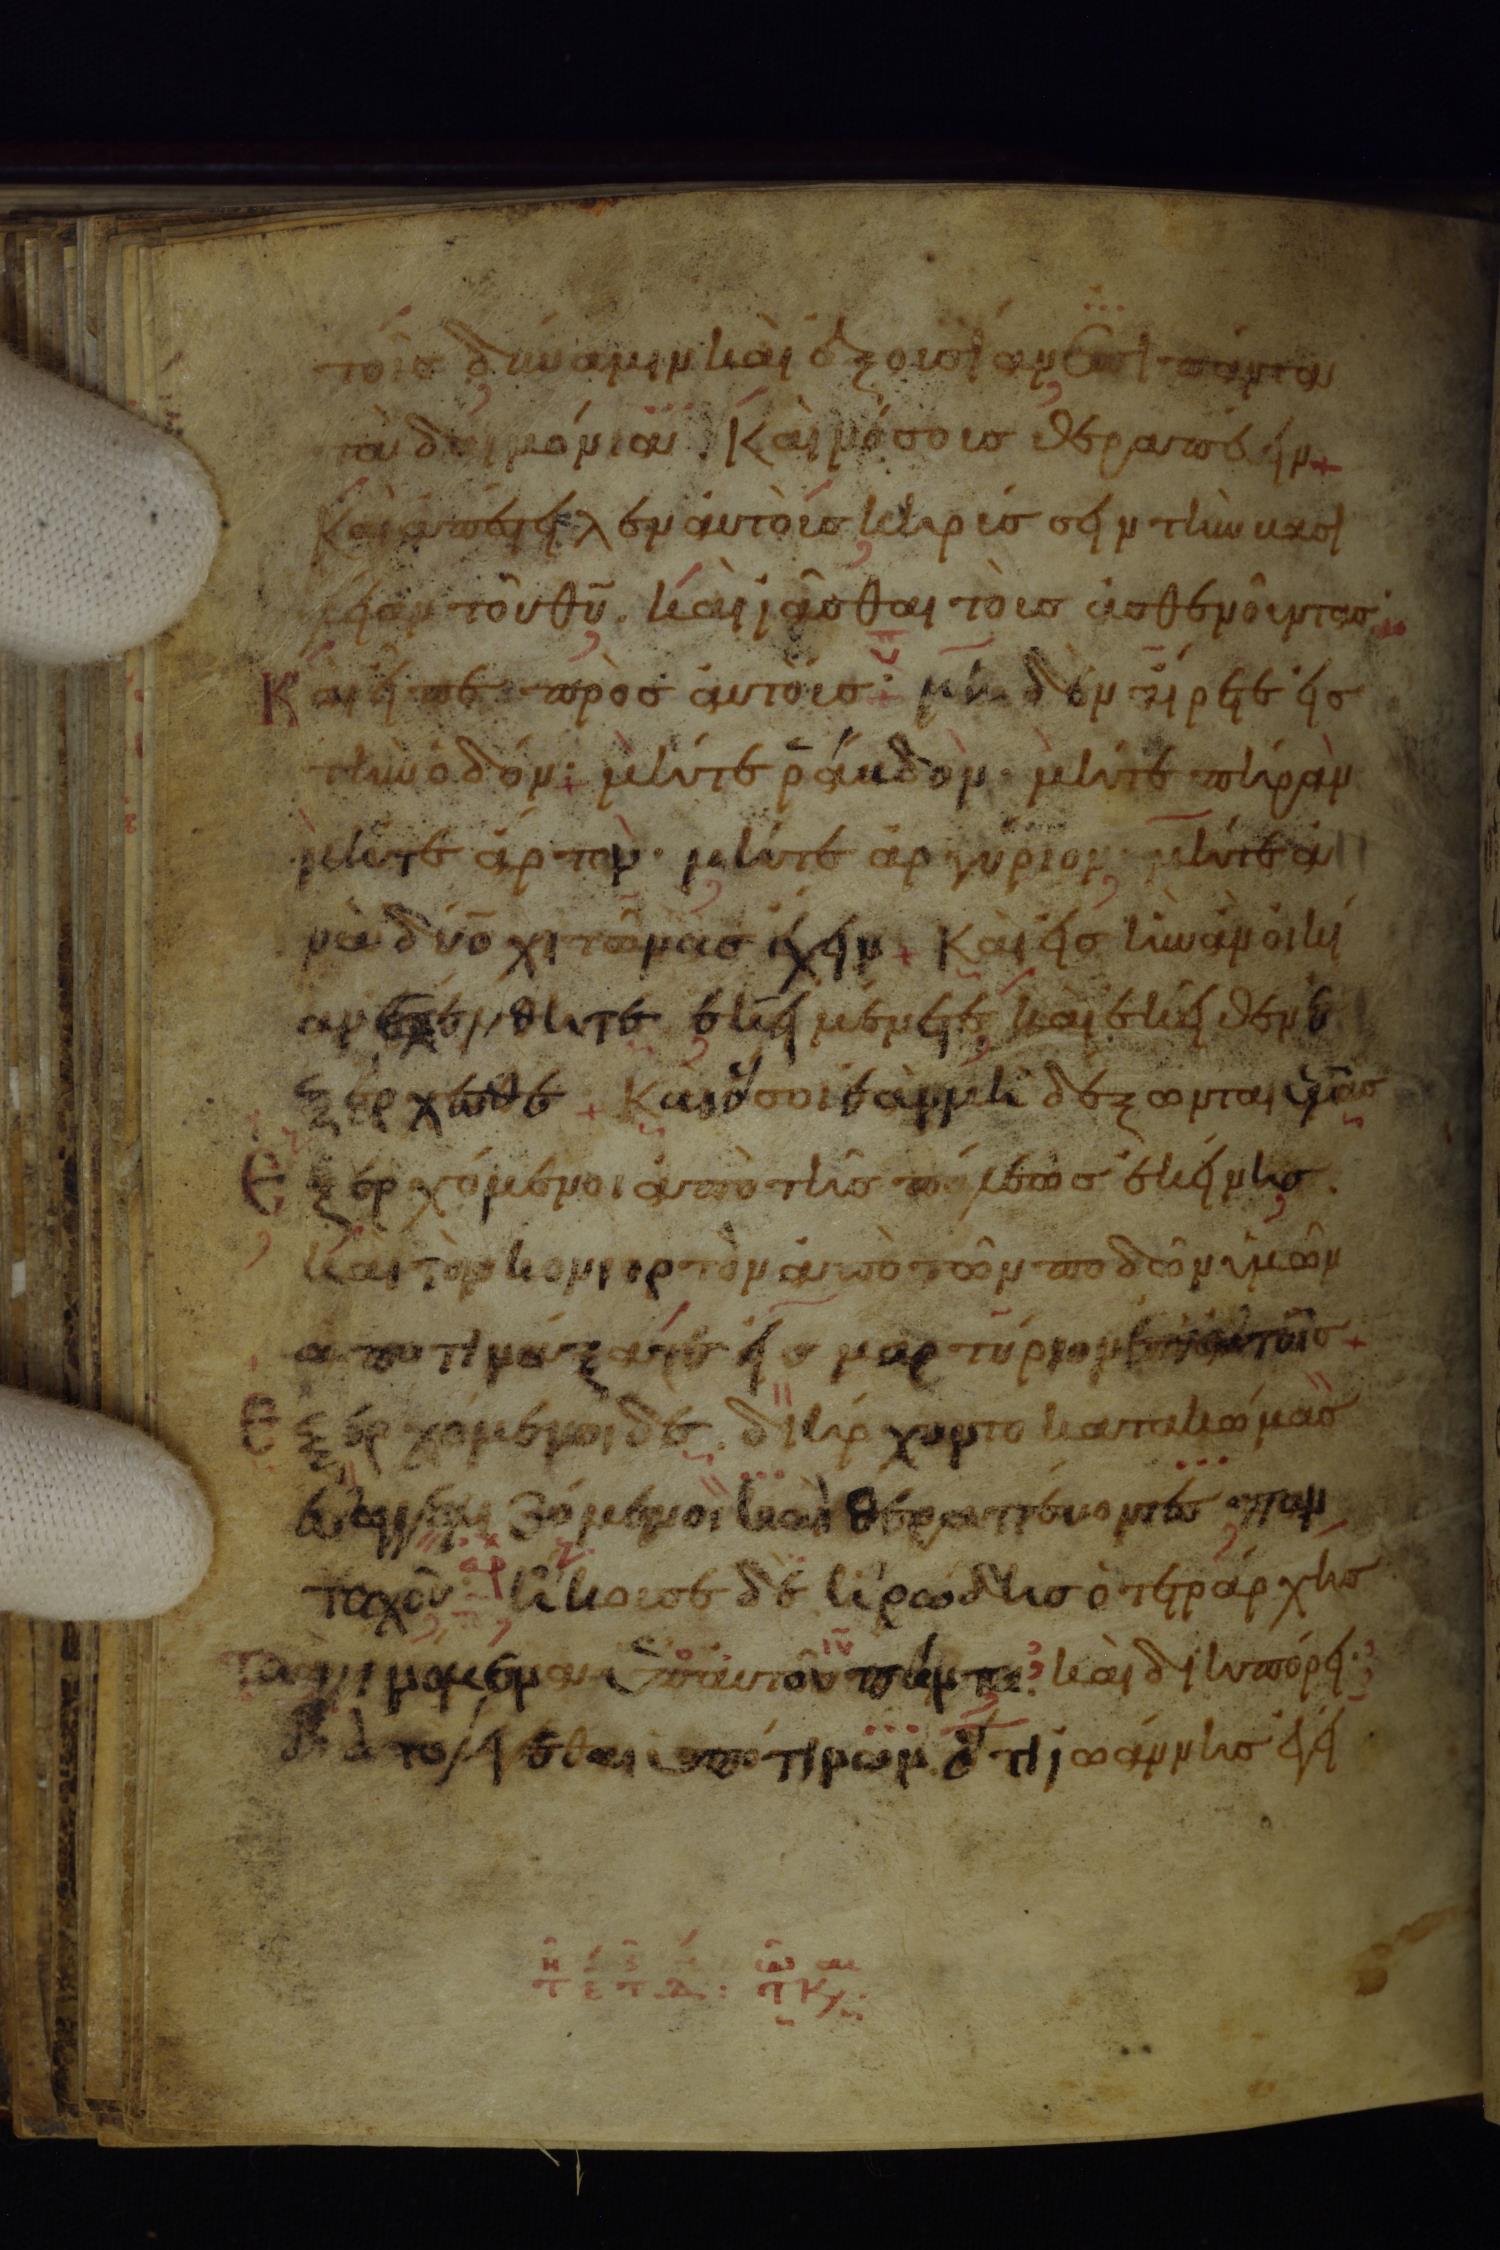 τοῖς δύναμιν καὶ ἐξουσίαν ἐπὶ πάντα
τὰ δαιμόνια. Καὶ νόσους θεραπεύειν +
Καὶ ἀπέστειλεν αὐτοὺς κηρύσσειν τὴν βασι
λείαν τοῦ θῡ. καὶ ἰᾶσθαι τοὺς ἀσθενοῦντας·
Καὶ εἶπε πρὸς αὐτούς· μηδὲν αἴρετε εἰς
τὴν ὁδόν· μήτε ῥάβδον· μήτε πήραν
μήτε ἄρτον· μήτε ἀργύριον· μήτε ἀ
νὰ δύο χιτῶνας ἔχειν + Καὶ εἰς ἣν ἂν οἰκί
αν εἰσέλθητε ἐκεῖ μένετε καὶ ἐκεῖθεν
ἐξέρχεσθε + Καὶ ὅσοι ἐὰν μὴ δέξωνται ὑμᾶς
Ἐξερχόμενοι ἀπὸ τῆς πόλεως ἐκείνης.
καὶ τὸν κονιορτὸν ἀπὸ τῶν ποδῶν ὑμῶν
ἀποτινάξατε εἰς μαρτύριον ἐπ' αὐτούς +
Ἐξερχόμενοι δὲ. διήρχοντο κατὰ κώμας
εὐαγγελιζόμενοι καὶ θεραπεύοντες παν
ταχοῦ· ἤκουσε δὲ ἡρώδης ὁ τετράρχης
τὰ γινόμενα ὑπ' αὐτοῦ πάντα· καὶ διηπόρει·
διὰ τὸ λέγεσθαι ὑπό τινων ὅτι ἰωάννης ἐγή